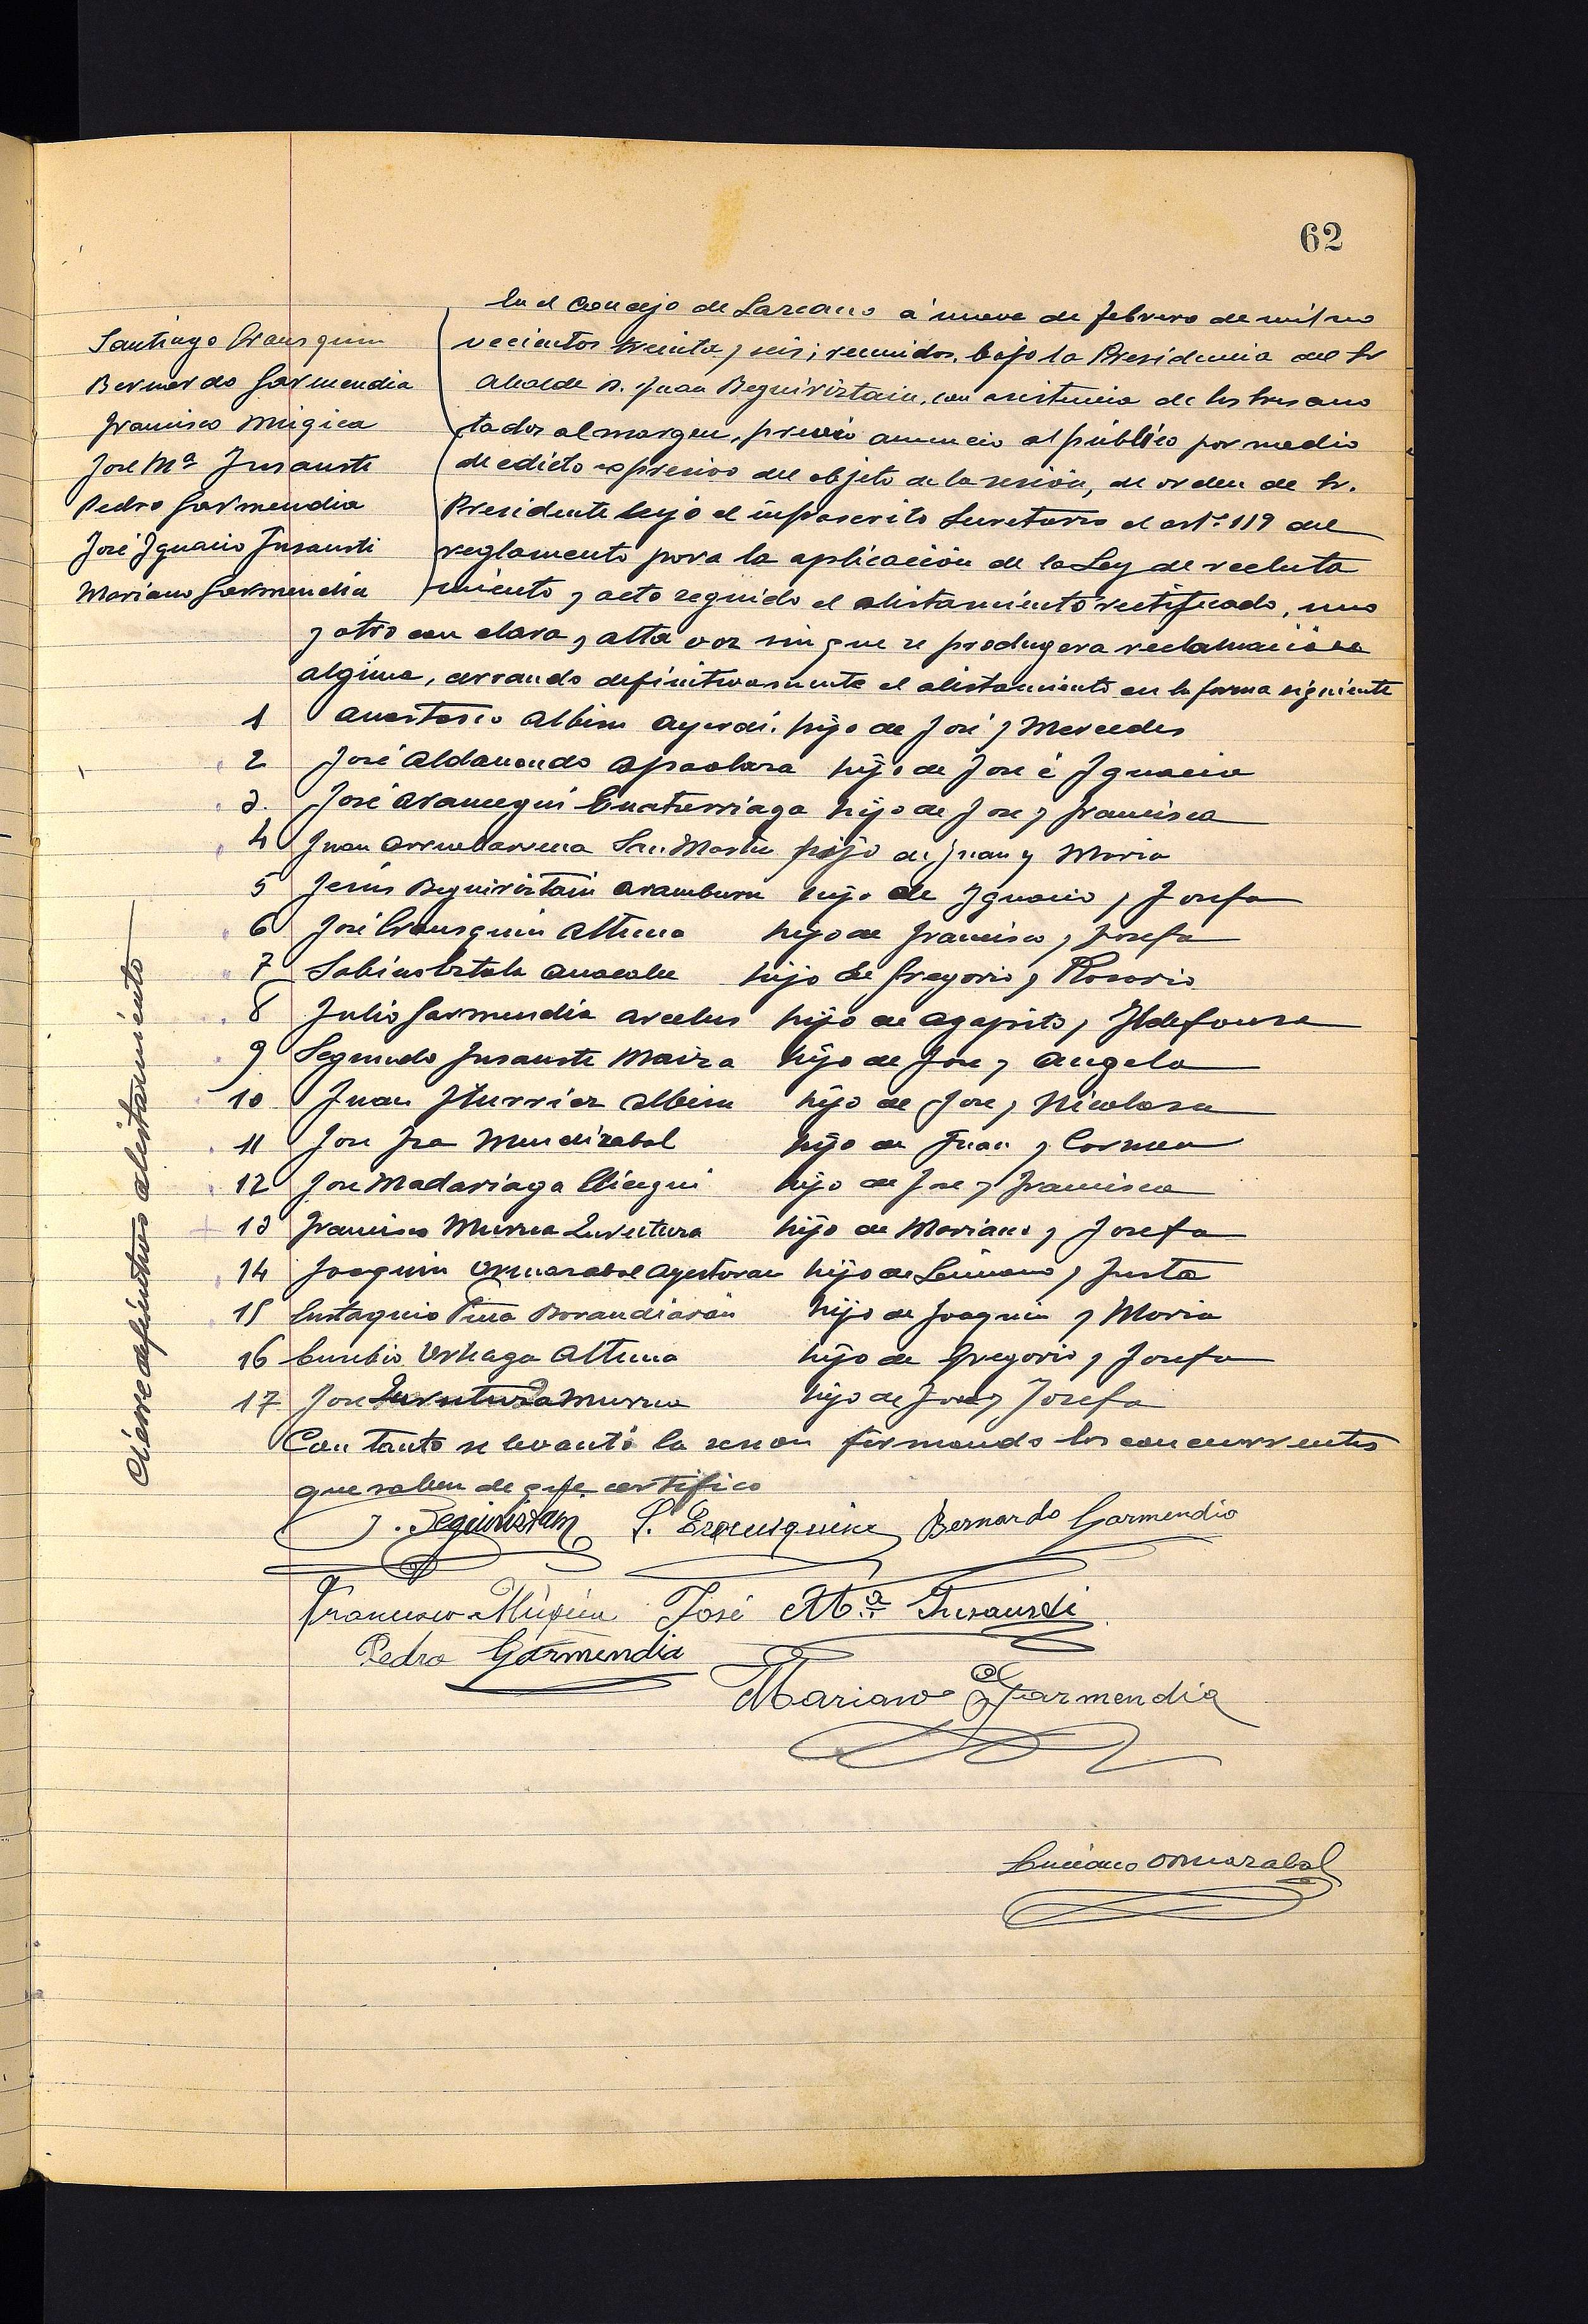 62
En el Concejo de Lazcano a nueve de febrero de mil no
vecientos treinta y seis; reunidos, bajo la Presidencia del Sr
Alcalde D. Juan Beguiristain, con asistencia de los Sres ano
tados al margen, previo anuncio al público por medio
de edicto expresivo del objeto de la sesión, de orden de Sr.
Presidente leyó el infrascrito Secretario el artº 119 del
reglamento para la aplicación de la Ley de recluta
miento y acto seguido el alistamiento rectificado, uno
y otro con clara y alta voz sin que se produgera reclamación
alguna, cerrando definitivamente el alistamiento en la forma siguiente
Santiago Erausquin
Bernardo Garmendia
Francisco Mugica
José Mª Insausti
Pedro Garmendia
José Ignacio Insausti
Mariano Garmendia
Cierre definitivo alistamiento
1 Anastasio Albisu Ayerdi. hijo de José y Mercedes
2 José Aldanondo Apaolaza hijo de José é Ignacia
3. José Arancegui hijo de José y Francisca
4 Juan Arruebarrena San Martin hijo de Juan y Maria
5 Jesús Beguiristain Aramburu hijo de Ignacio y Josefa
6 José Erausquin Altuna hijo de Francisco y Josefa
7 Sabino hijo de Gregorio y Rosario
8 Julio Garmendia Arcelus hijo de Agapito y Ildefonsa
9 Segundo Insausti Maiza hijo de José y Angela
10 Juan Iturrioz Albisu hijo de José y Nicolasa
11 José Mendizabal hijo de Juan y Carmen
12 José Madariaga hijo de José y Francisca
13 Francisco Murua Inventura hijo de Mariano y Josefa
14 Joaquin Ormazabal Ayestaran hijo de Luciano y Justa
15 Eustaquio Piña Barandiarán hijo de Joaquin y Maria
16 Eusebio Urteaga Altuna hijo de Gregorio y Josefa
17 José Murua hijo de José y Josefa
Con tanto se levantó la sesion firmando los concurrentes
que saben de que certifico
J. Beguiristain S. Erausquin Bernardo Garmendia
Francisco Mújica José Mª Insausti
Pedro Garmendia
Mariano Garmendia
Luciano Ormazabal